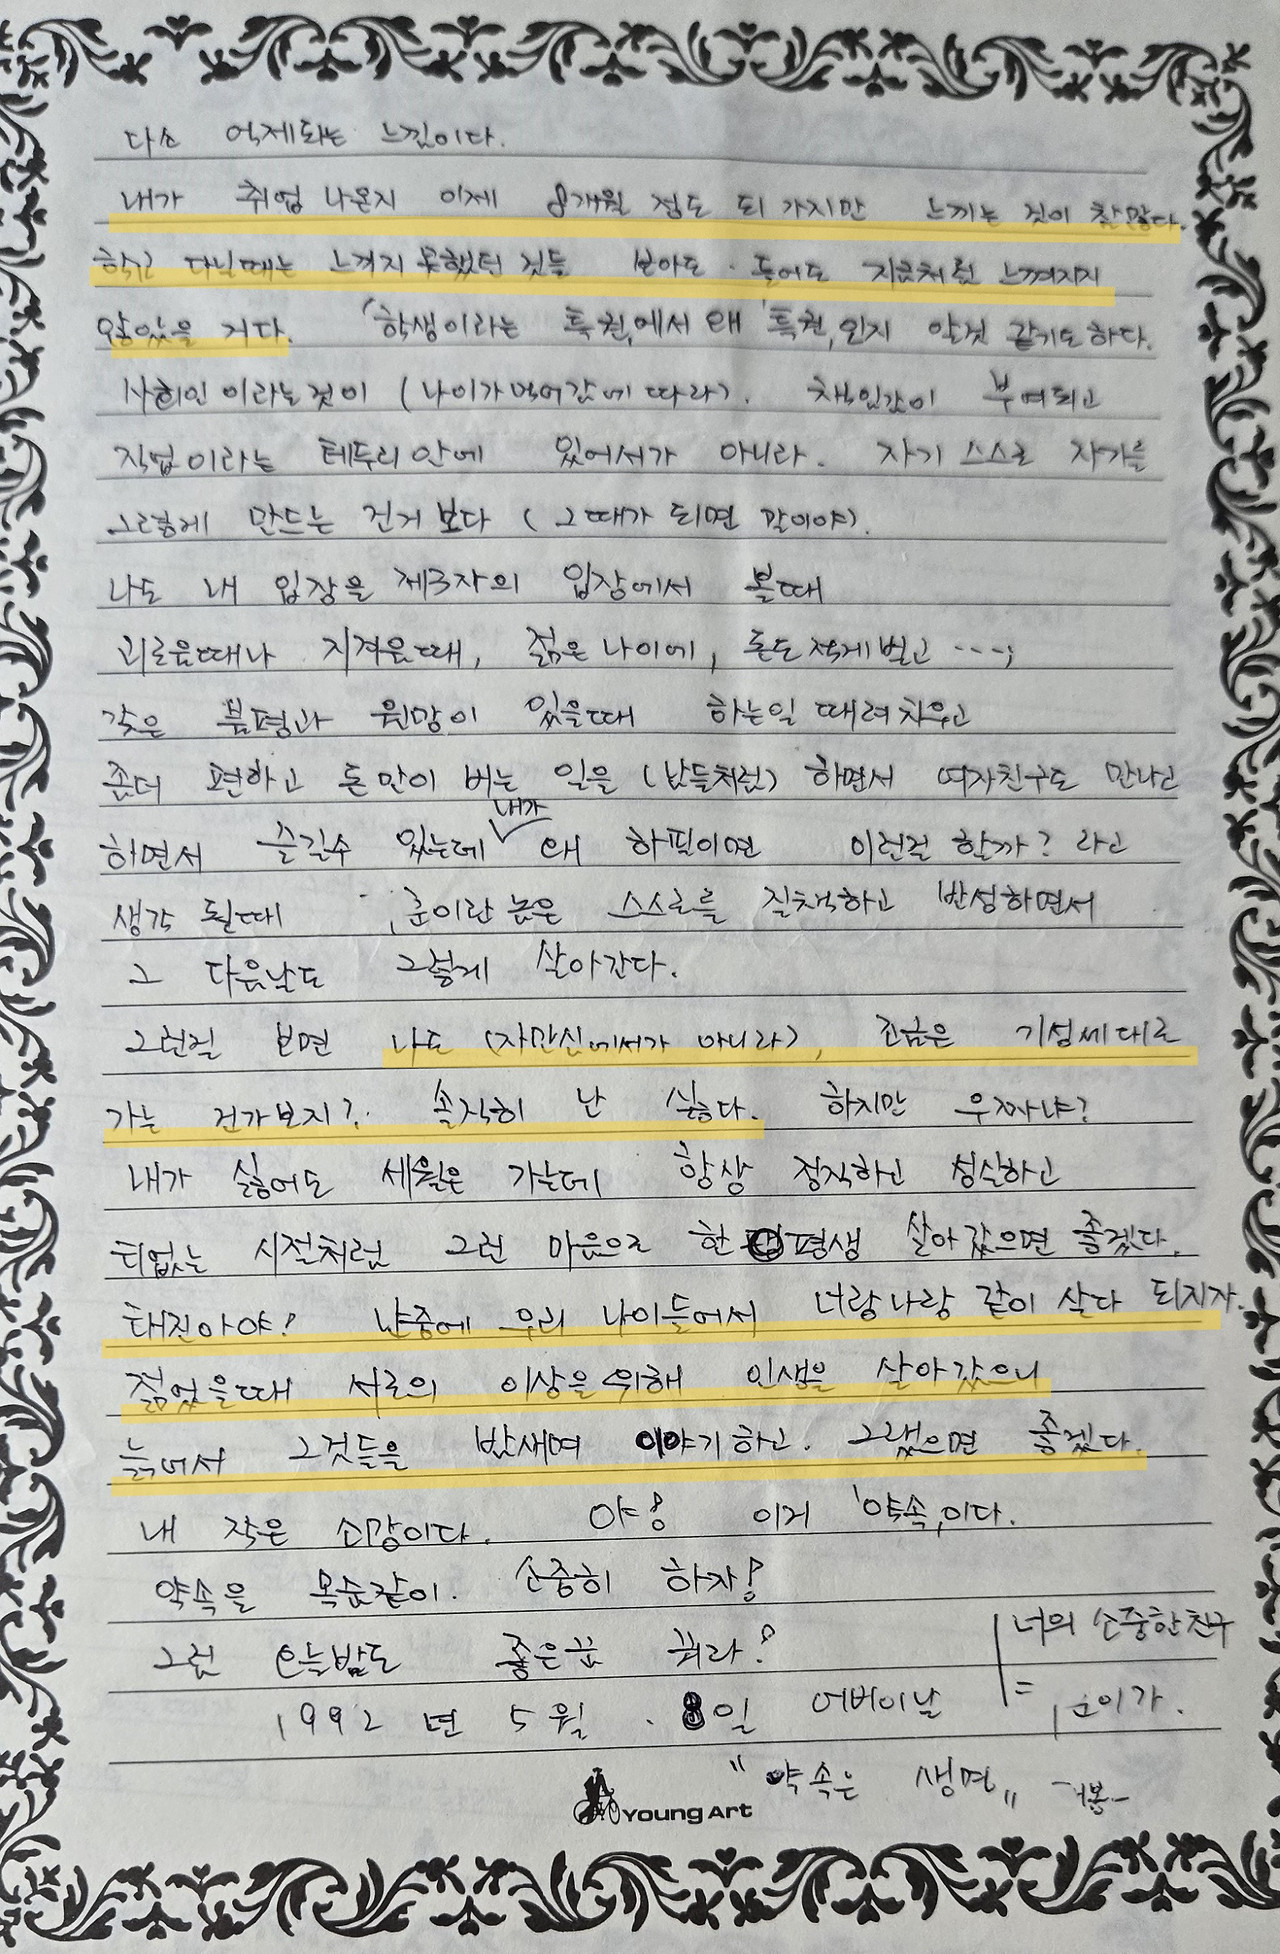 다소 억제되는 느낌이다.
내가 취업 나온지 이제 8개월 정도 되 가지만 느끼는 것이 참 많다.
학교 다닐때는 느껴지 못했던 것들 보아도 · 들어도 지금처럼 느껴지지
않았을 거다. '학생이라는 특권,에서 왜 '특권,인지 알것 같기도 하다.
사회인 이라는것이 (나이가 먹어감에 따라). 책임감이 부여되고
직업이라는 테두리 안에 있어서가 아니라. 자기 스스로 자기를
그렇게 만드는 건거 보다 (그때가 되면 말이야).
나도 내 입장을 제3자의 입장에서 볼때
괴로울때나 지겨울때, 젊은 나이에, 돈도 적게 벌고 ---;
갖은 불평과 원망이 있을때 하는일 때려 치우고
좀더 편하고 돈 만이 버는 일을 (남들처럼) 하면서 여자친구도 만나고
하면서 즐길수 있는데 내가 왜 하필이면 이런걸 할까? 라고
생각 될때 이란 놈은 스스로를 질책하고 반성하면서
그 다음날도 그렇게 살아간다.
그런걸 보면 나도 (자만심에서가 아니라), 조금은 기성세대로
가는 건가보지?. 솔직히 난 싫다. 하지만 우짜냐?
내가 싫어도 세월은 가는데 항상 정직하고 성실하고
티없는 시절처럼 그런 마음으로 한 평생 살아 갔으면 좋겠다.
태진아야! 난중에 우리 나이들어서 너랑 나랑 같이 살다 되지자.
젊었을때 서로의 이상을 위해 인생을 살아 갔으니
늙어서 그것들을 밤새며 이야기 하고. 그랬으면 좋겠다.
내 작은 소망이다. 야! 이거 '약속,이다.
약속을 목숨같이. 소중히 하자!
그럼 오늘밤도 좋은꿈 꿔라?
너의 소중한 친구
1992 년 5월 . 8일 어버이날
= 이가.
" 약속은 생명 "
Young Art